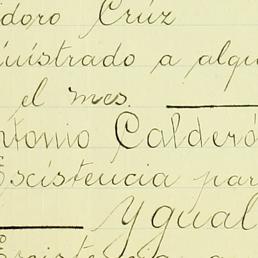 idoro Crúz
uistrado a alqu
el mes.
ntonio Calderó
Escistencia par
Ygual